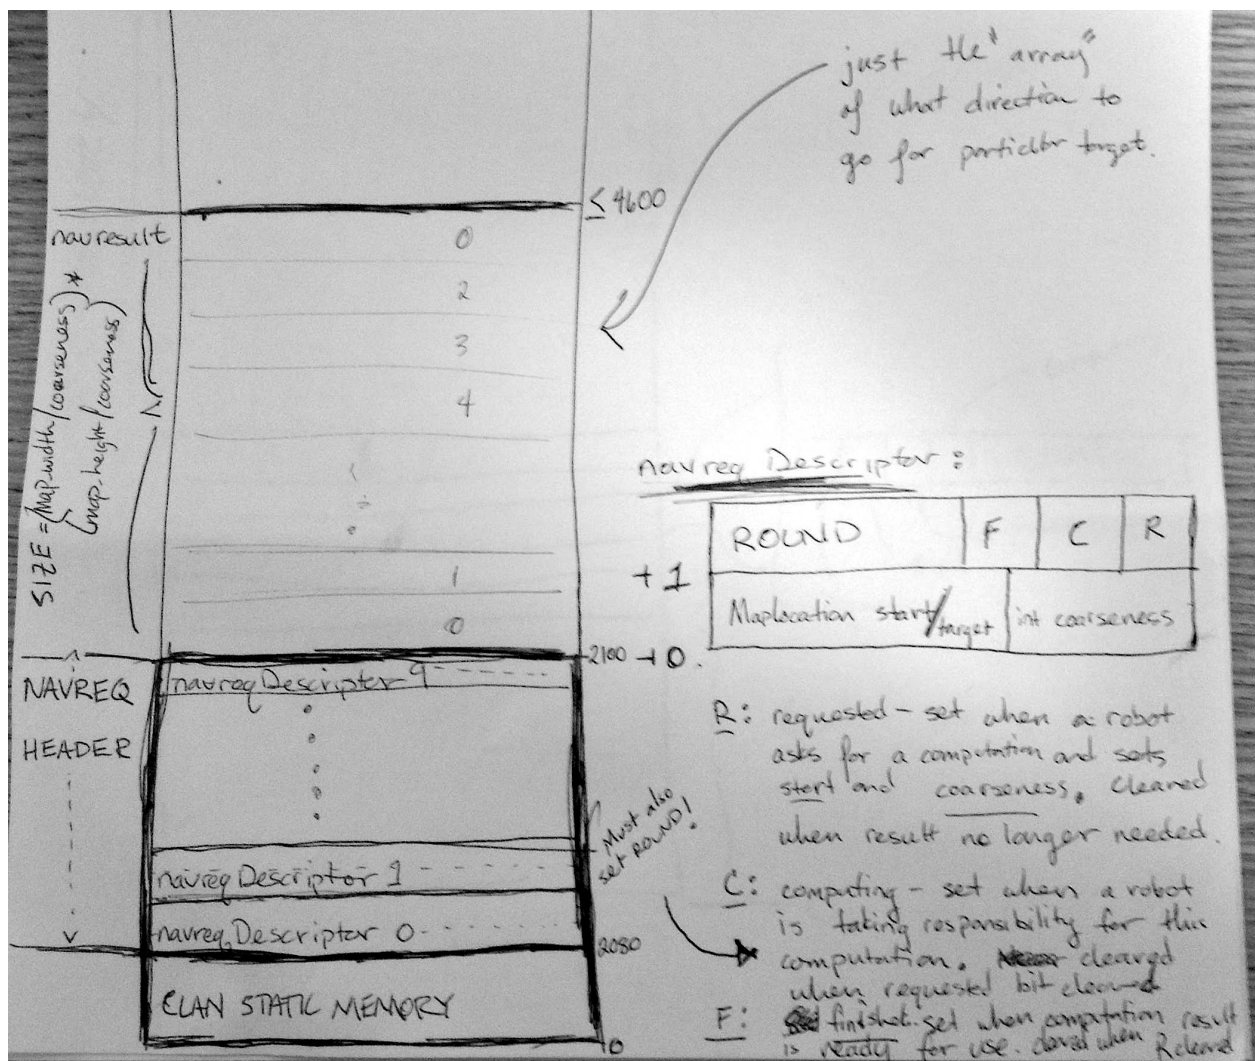 just the "array"
of what direction to
go for particlbr target.
≤ 4600
navresult
0
2
3
4
1
0
SIZE = (Map.width/coarseness) *
(map.height/coarseness)
2100
NAVREQ
HEADER
navreq Descriptor 9
navreq Descriptor 1
navreq Descriptor 0
2080
CLAN STATIC MEMORY
0
Must also
set ROUND!
navreq Descriptor:
ROUND F C R
+1
Maplocation start/target int coarseness
+0.
R: requested - set when a robot
asks for a computation and sets
start and coarseness. Cleared
when result no longer needed.
C: computing - set when a robot
is taking responsibility for this
computation. cleared
when requested bit cleared
F: finished. set when computation result
is ready for use. cleared when R cleared